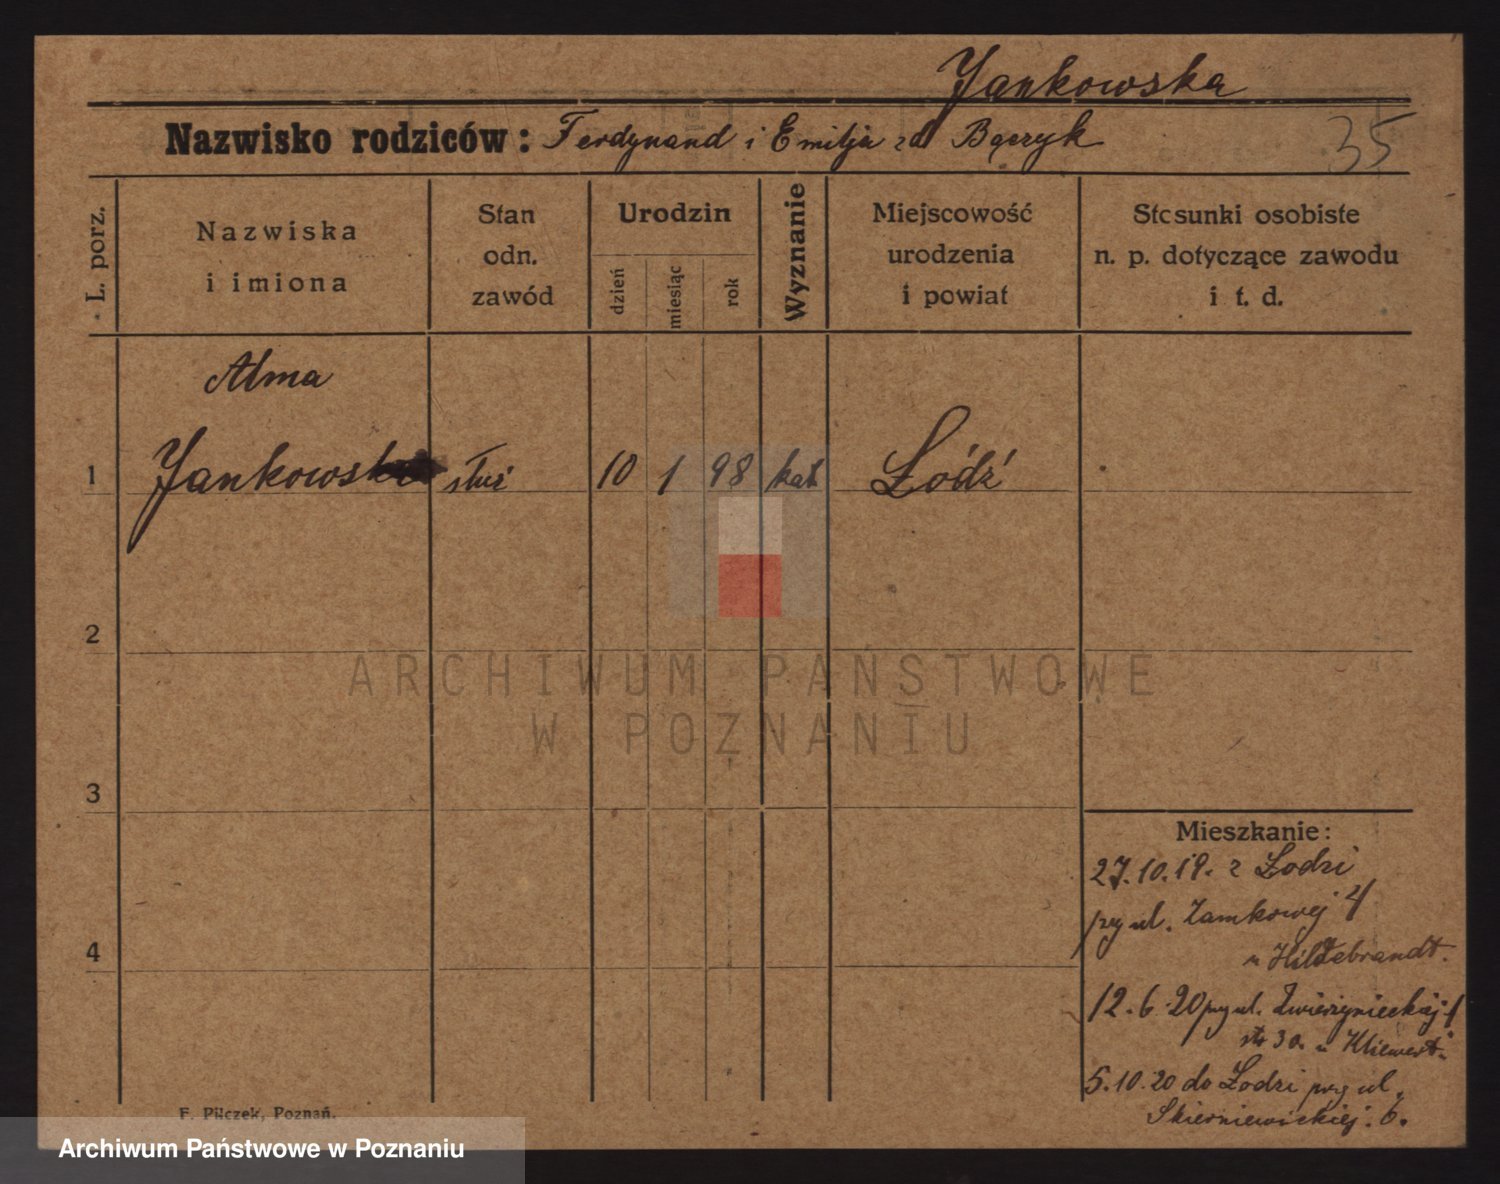 Jankowska
Nazwisko rodziców: Ferdynand i Emilja zd Bączyk
35
L. porz.
Nazwiska
i imiona
Stan
odn.
zawód
Urodzin
dzień
miesiąc
rok
Wyznanie
Miejscowość
urodzenia
i powiat
Stosunki osobiste
n. p. dotyczące zawodu
i t. d.
Alma
1 Jankowska służ 10 1 98 kat Łódź
2
ARCHIWUM PAŃSTWOWE
W POZNANIU
3
Mieszkanie:
27.10.19. z Łodzi
przy ul. Zamkowej 4
u Hildebrandt.
4
12.6.20 przy ul. Zwierzynieckiej 1
str 3a u
5.10.20 do Łodzi przy ul.
Skierniewickiej. 6.
F. Pilczek, Poznań.
Archiwum Państwowe w Poznaniu